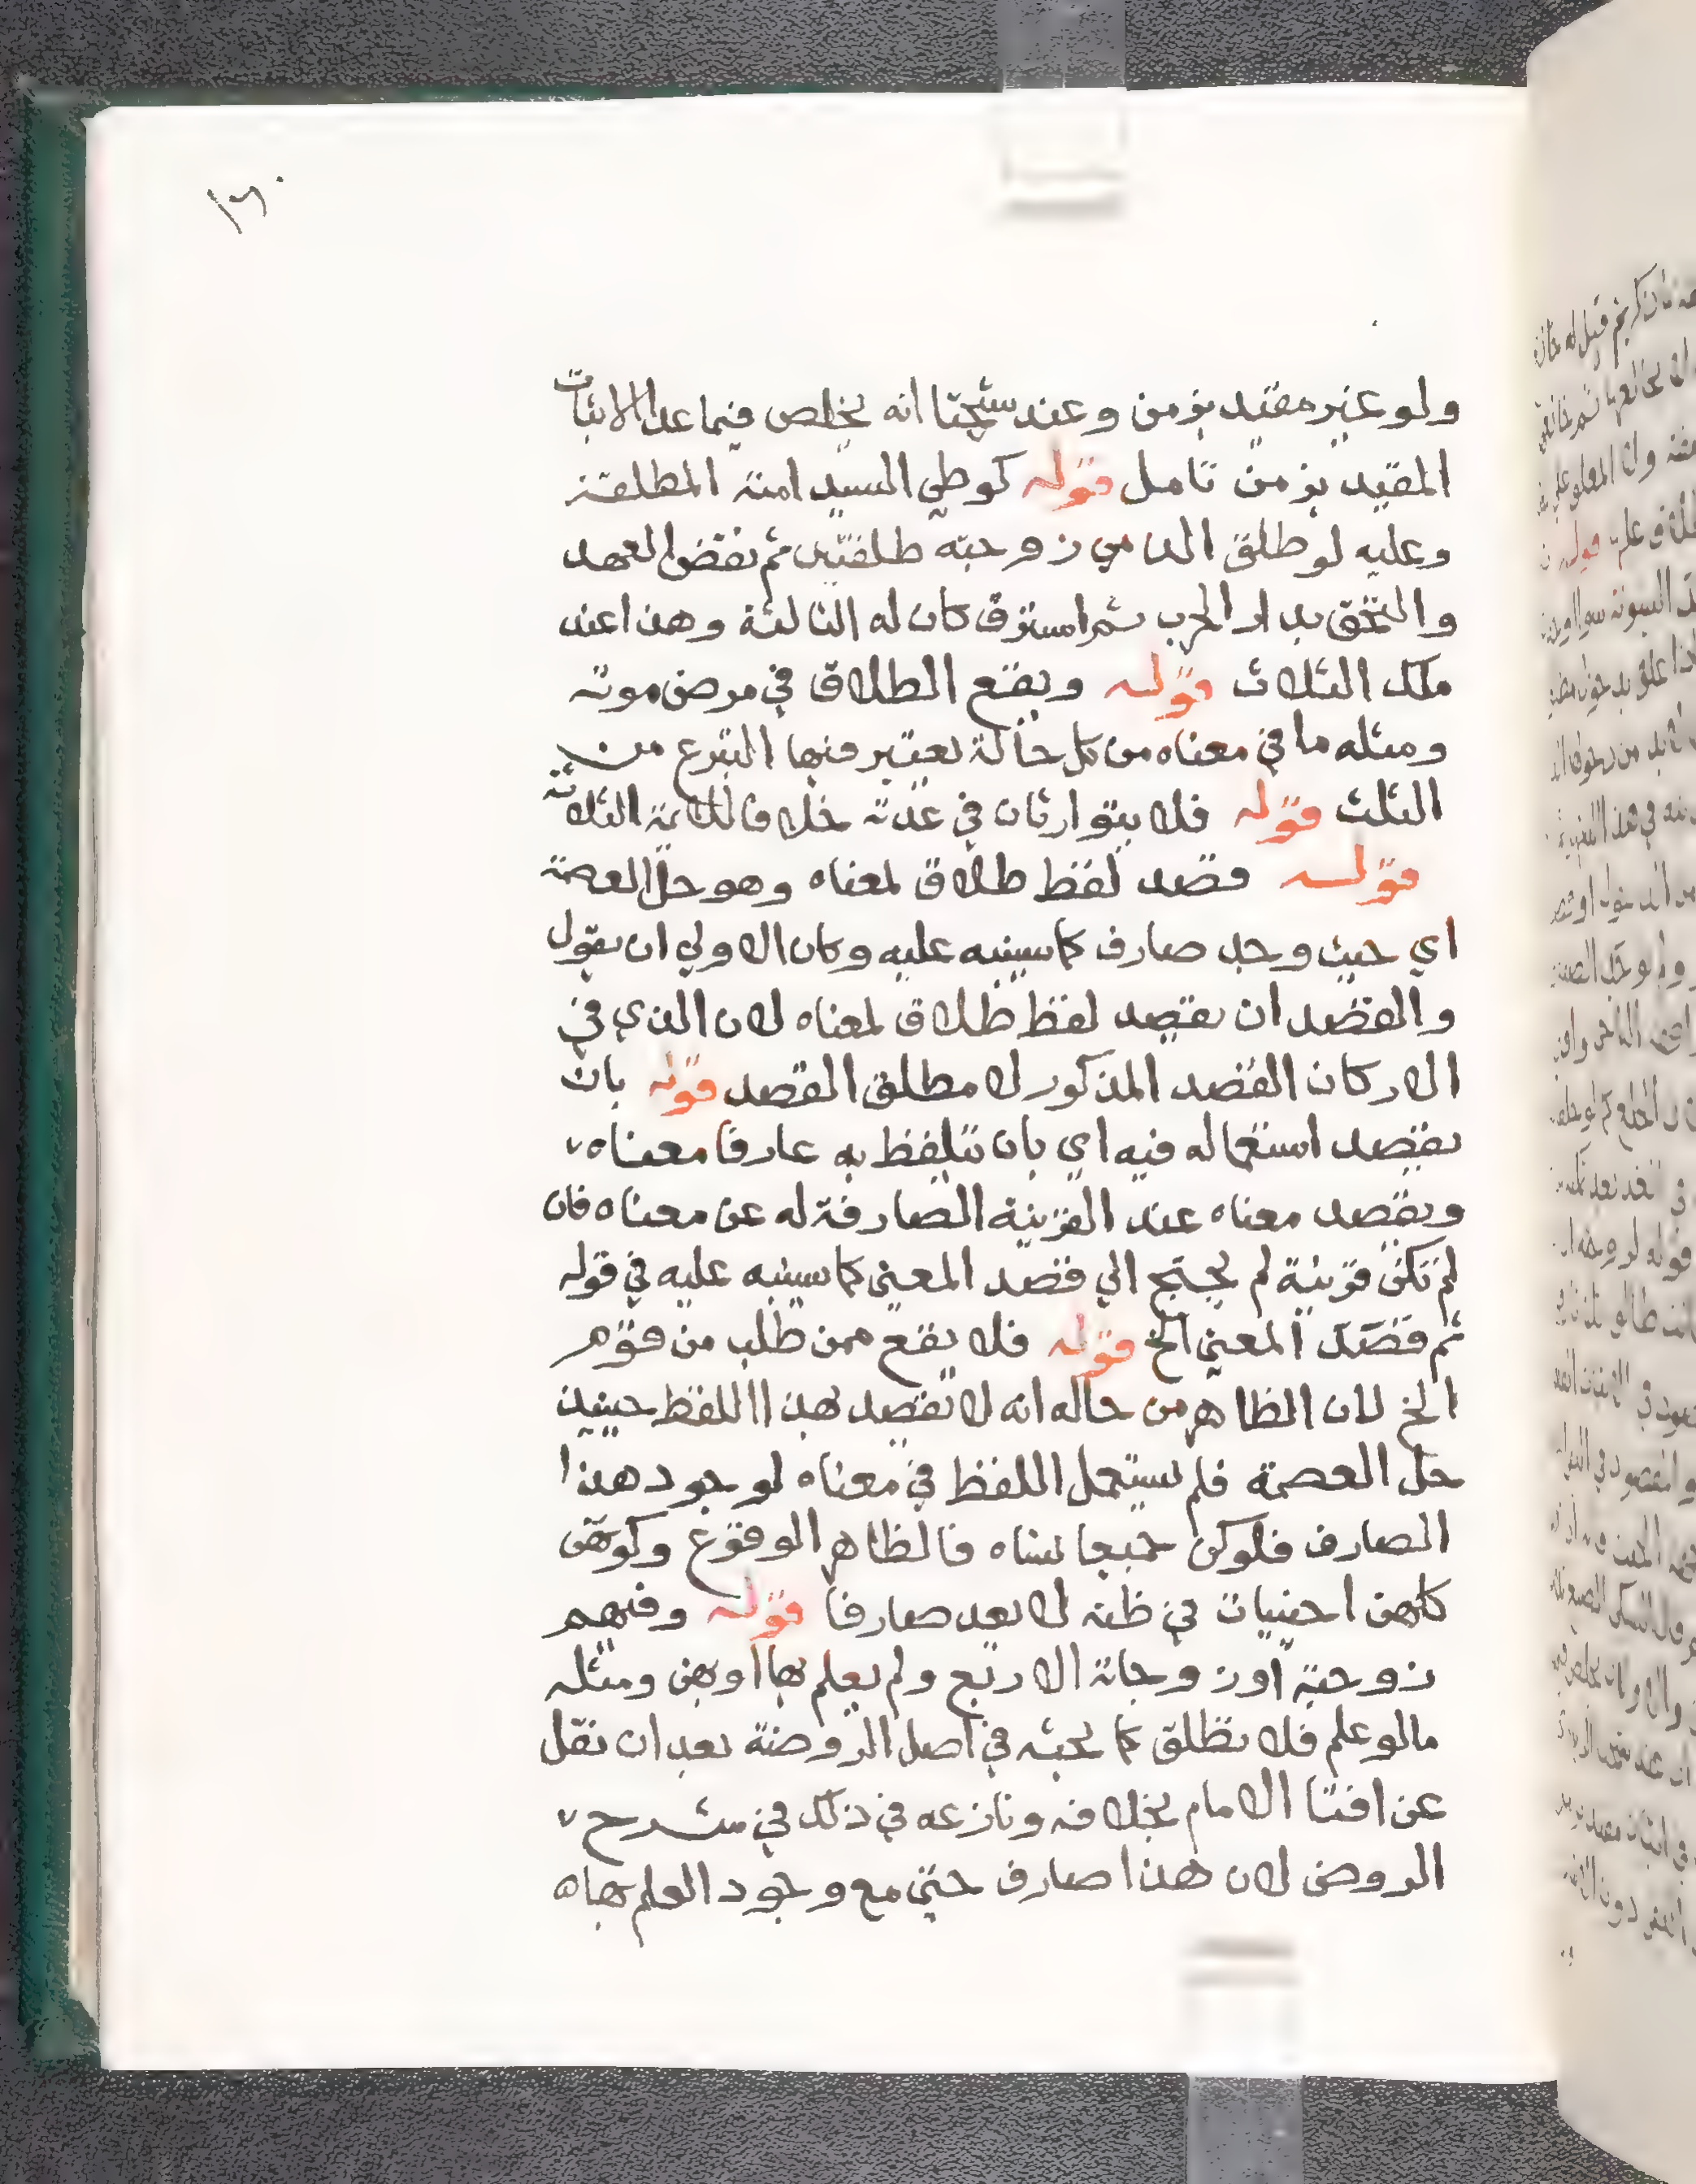 ١٦٠
ولو غير مقيد بزمن وعند شيخنا انه يخلص فيما عدا الاثبات
المقيد بزمن تامل قوله كوطي السيد امته المطلقة
وعليه لو طلق الذمي زوجته طلقتين ثم نقض العهد
والتحق بدار الحرب ثم استرق كان له الثالثة وهذا عند
ملك الثلاث قوله ويقع الطلاق في مرض موته
ومثله ما في معناه من كل حالة يعتبر فيها التبرع من
الثلث قوله فلا يتوارثان في عدته خلافا للايمة الثلاثة
قوله قصد لفظ طلاق لمعناه وهو حل العصمة
اي حيث وجد صارف كما سينبه عليه وكان الاولي ان يقول
والقصد ان يقصد لفظ طلاق لمعناه لان الذي في
الاركان القصد المذكور لا مطلق القصد قوله بان
يقصد استعماله فيه اي بان يتلفظ به عارفا معناه
ويقصد معناه عند القرينة الصارفة له عن معناه فان
لم تكن قرينة لم يحتج الي قصد المعني كما سينبه عليه في قوله
ثم قصد المعني الخ قوله فلا يقع ممن طلب من قوم
الخ لان الظاهر من حاله انه لا يقصد بهذا اللفظ حينيذ
حل العصمة فلم يستعمل اللفظ في معناه لوجود هذا
الصارف فلو كن جميعا نساه فالظاهر الوقوع وكونهن
كلهن اجنبيات في ظنه لا يعد صارفا قوله وفيهم
زوجته او زوجاته الاربع ولم يعلم بها او بهن ومثله
ما لو علم فلا تطلق كما بحثه في اصل الروضة بعد ان نقل
عن افتا الامام بخلافه ونازعه في ذلك في شرح
الروض لان هذا صارف حتي مع وجود العلم بها